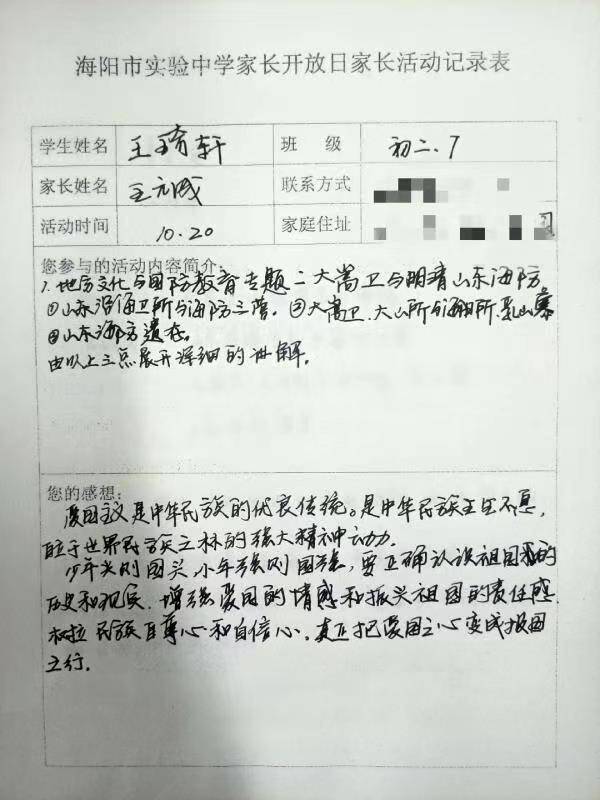 海阳市实验中学家长开放日家长活动记录表
学生姓名 王琦轩 班 级 初二.7
家长姓名 王元成 联系方式
活动时间 10.20 家庭住址
您参与的活动内容简介:
1.地方文化与国防教育专题二大嵩卫与明清山东海防
①山东沿海卫所与海防三营.②大嵩卫.大山所与海阳所.乳山寨
③山东海防遗存。
由以上三点展开详细的讲解.
您的感想:
爱国主义是中华民族的优良传统。是中华民族生生不息,
屹立于世界民族之林的强大精神动力.
少年兴则国兴,少年强则国强,要正确认识祖国的
历史和现实.增强爱国的情感和振兴祖国的责任感.
树立民族自尊心和自信心.真正把爱国之心变成报国
之行.